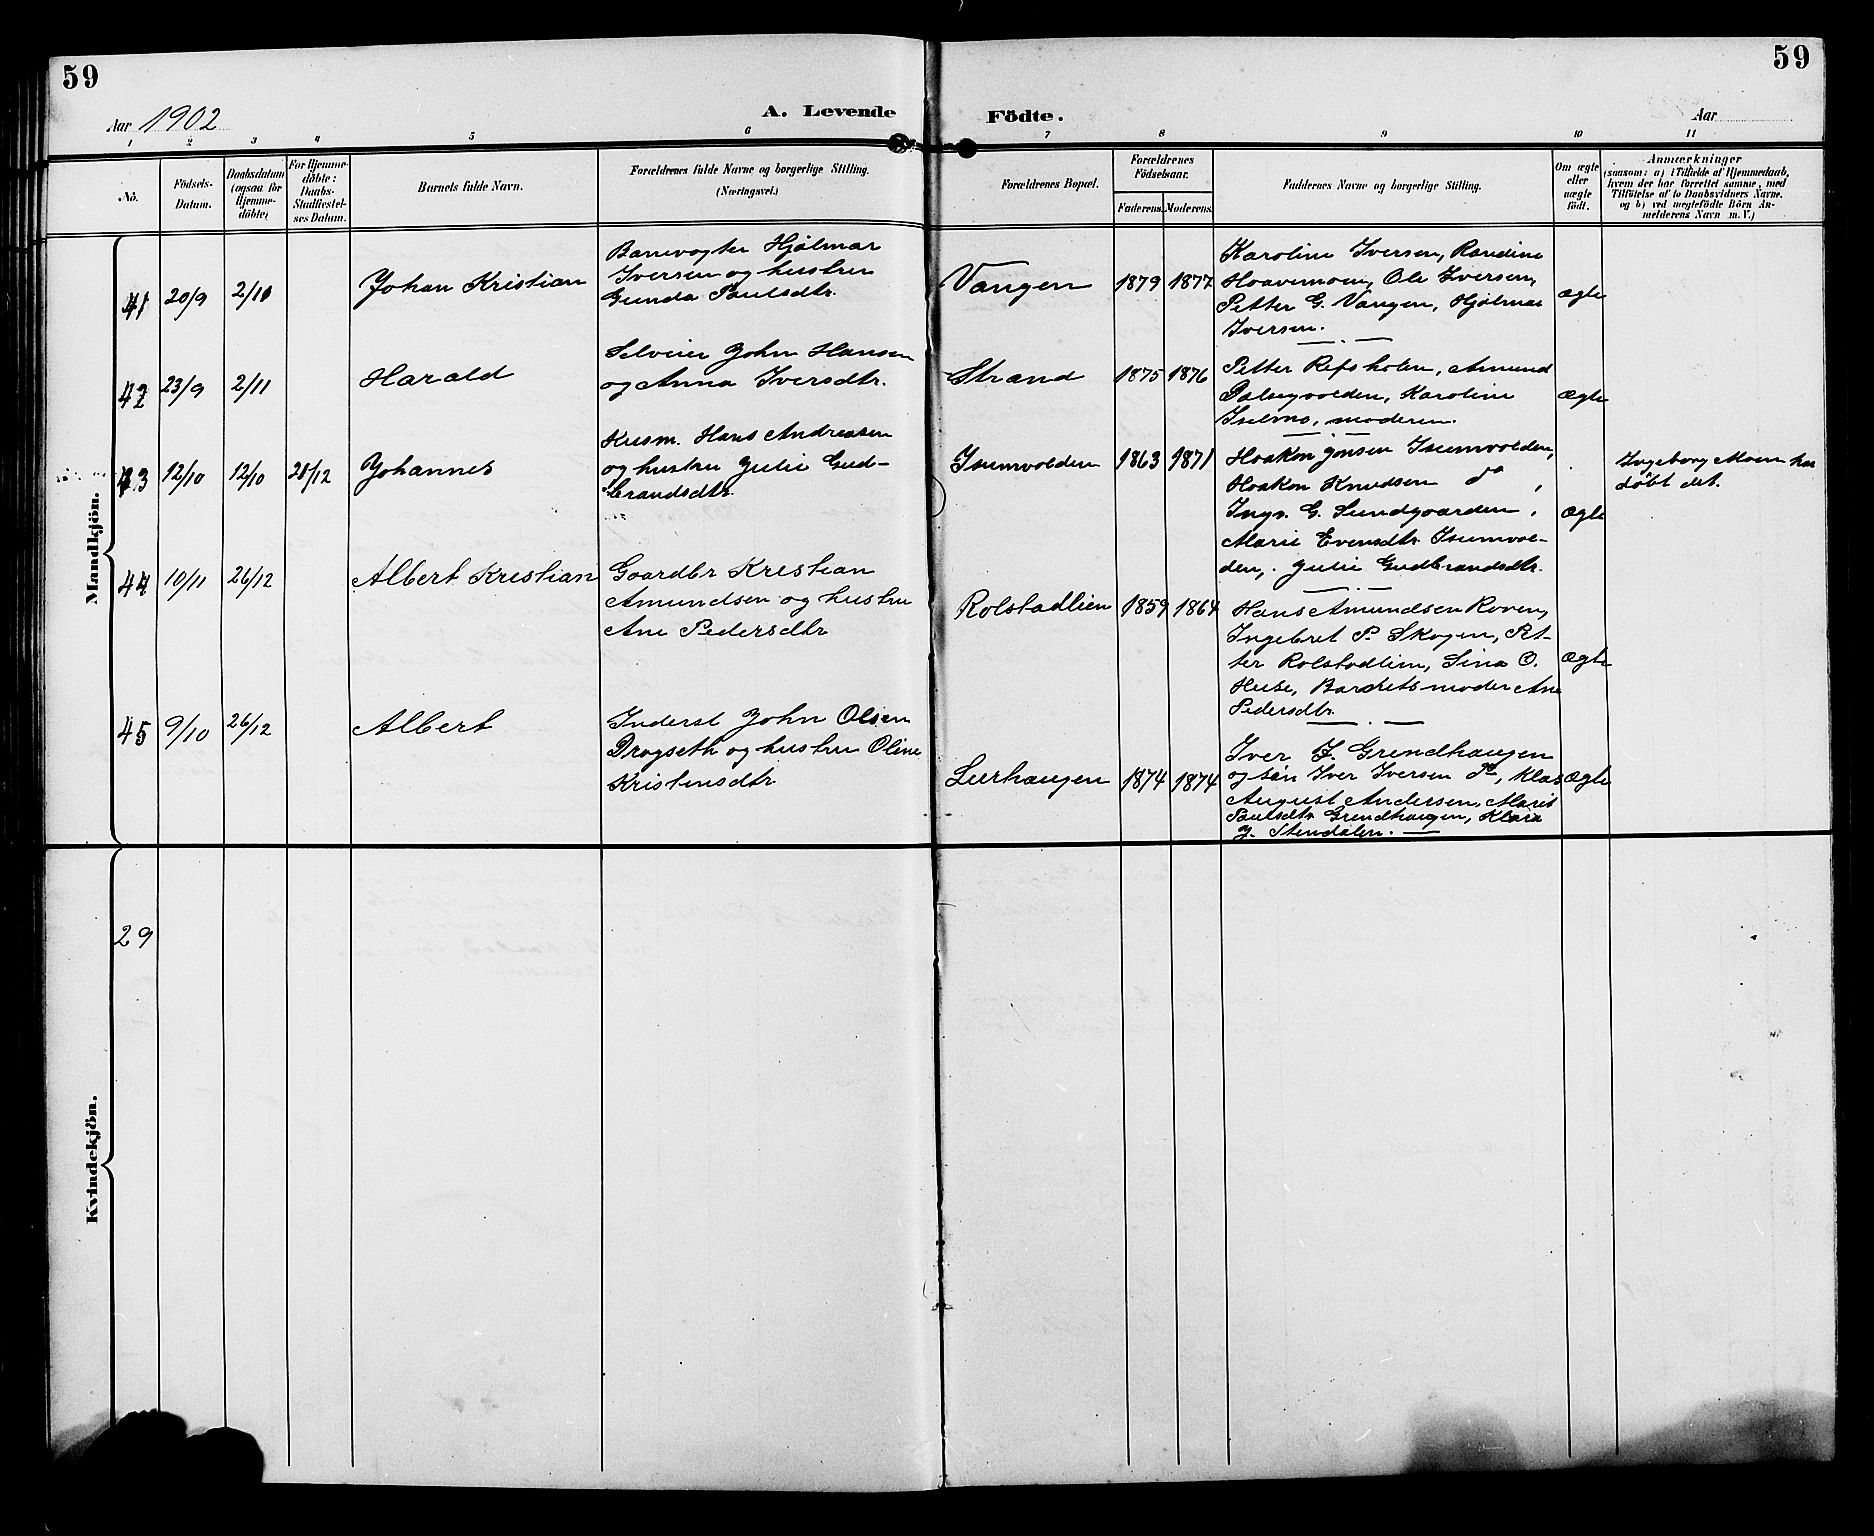 59
59
Aar 1902
A. Levende
Födte.
Aar
1 2 3 4 5 6 7 8 9 10 11
No.
Födsels-
Datum.
Daabsdatum
(ogsaa for
Hjemme-
döbte)
For Hjemme-
döbte:
Daabs-
Stadfæstel-
ses Datum.
Barnets fulde Navn.
Forældrenes fulde Navne og borgerlige Stilling.
(Næringsvei.)
Forældrenes Bopæl.
Forældrenes
Födselsaar.
Faderens. Moderens.
Faddernes Navne og borgerlige Stilling.
Om ægte
eller
uægte
födt.
Anmærkninger
(saasom: a) i Tilfælde af Hjemmedaab,
hvem der har forrettet samme, med
Tilföielse af to Daabsvidners Navne.
og b) ved uægtefödte Börn An-
melderens Navn m. V.)
Mandkjön.
41 20/9 2/11 Johan Kristian
Banevogter Hjalmar
Iversen og hustru
Gunda Paulsdtr.
Vangen 1879 1877
Karoline Iversen, Randine
Haavemoen, Ole Iversen,
Petter G. Vangen, Hjalmar
Iversen.
Ægte
42 23/9 2/11 Harald
Selveier John Hansen
og Anna Iversdtr.
Strand 1875 1876
Petter Refsholen, Amund
Dalsegvolden, Karoline
Iselmo, moderen.
Ægte
43 12/10 12/10 28/12 Johannes
Husm. Hans Andreasen
og hustru Julie Gud-
brandsdtr.
Isumvolden 1863 1871
Haakon Jonsen Isumvolden,
Haakon Knudsen do,
Ingv. G. Sundgaarden,
Marie Evensdtr Isumvol-
den, Julie Gudbrandsdtr.
Ægte
Ingeborg Moen har
döbt det.
44 10/11 26/12 Albert Kristian
Gaardbr Kristian
Amundsen og hustru
Ane Pedersdtr
Rolstadlien 1859 1864
Hans Amundsen Roven,
Ingebret P. Skogen, Pet-
ter Rolstadlien, Sina O.
Huse, Barnets moder Ane
Pedersdtr.
Ægte
45 9/10 26/12 Albert
Inderst John Olsen
Drogseth og hustru Oline
Kristensdtr
Lurhaugen 1874 1874
Iver J. Grendhaugen
og sön Iver Iversen do, Klas
August Andersen, Marit
Paulsdtr Grendhaugen, Klara
J. Stendalen.
Ægte
Kvindekjön.
29